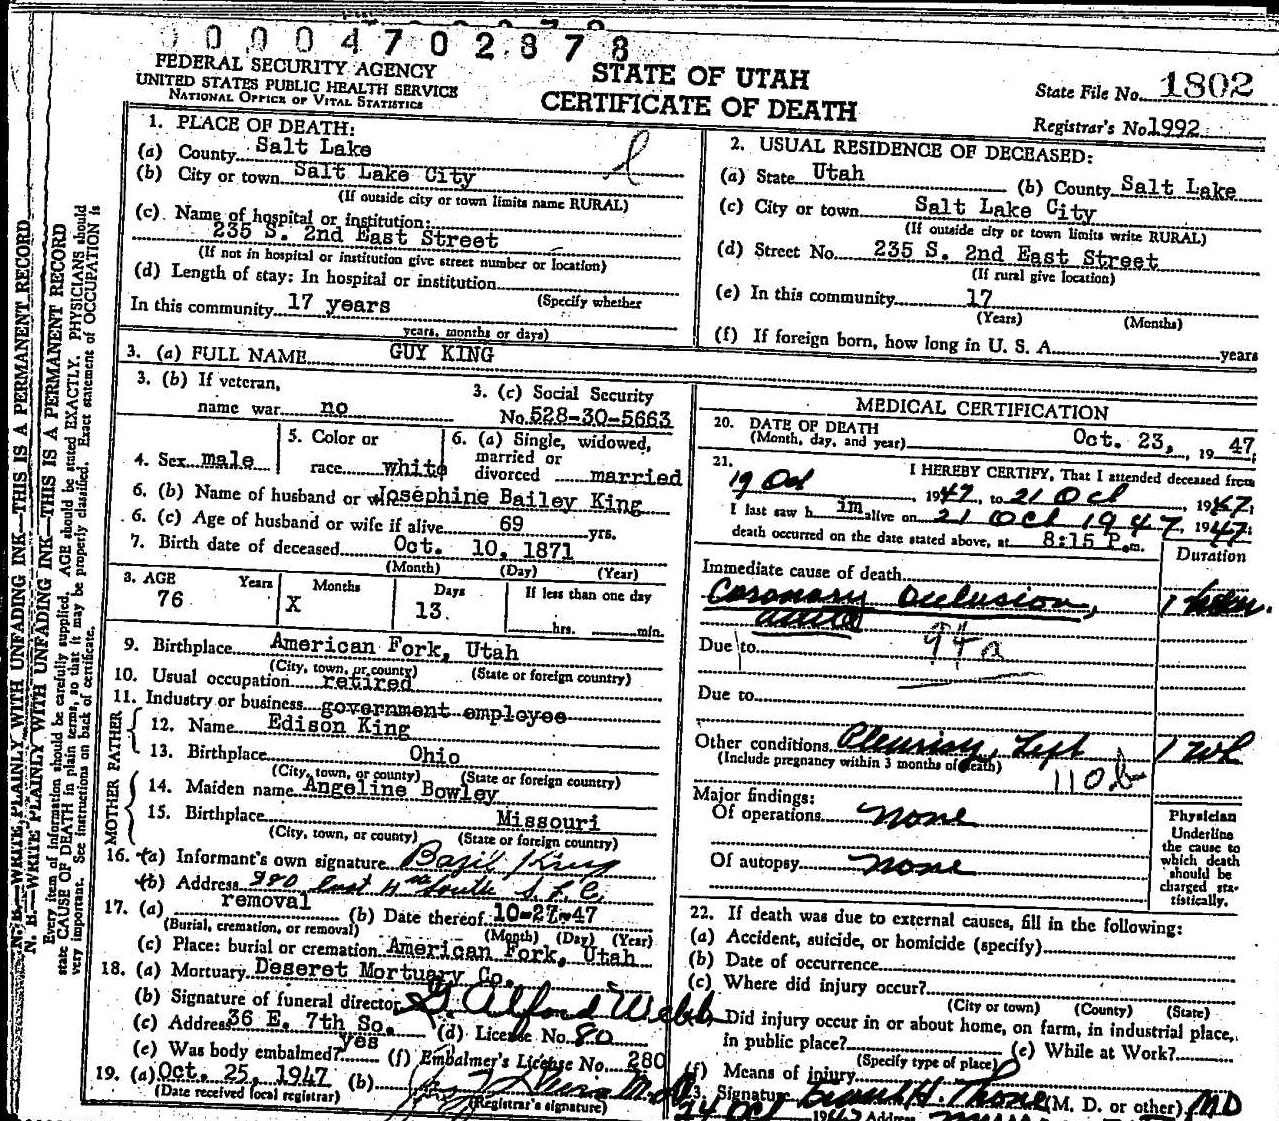 0 0 0 0 4 7 0 2 8 7 8
FEDERAL SECURITY AGENCY
UNITED STATES PUBLIC HEALTH SERVICE
NATIONAL OFFICE OF VITAL STATISTICS
STATE OF UTAH
CERTIFICATE OF DEATH
State File No. 1802
Registrar's No. 1992
1. PLACE OF DEATH:
(a) County Salt Lake
(b) City or town Salt Lake City
(If outside city or town limits name RURAL)
(c) Name of hospital or institution:
235 S. 2nd East Street
(If not in hospital or institution give street number or location)
(d) Length of stay: In hospital or institution
(Specify whether
In this community 17 years
years, months or days)
2. USUAL RESIDENCE OF DECEASED:
(a) State Utah (b) County Salt Lake
(c) City or town Salt Lake City
(If outside city or town limits write RURAL)
(d) Street No. 235 S. 2nd East Street
(If rural give location)
(e) In this community 17
(Years) (Months)
(f) If foreign born, how long in U. S. A. years
3. (a) FULL NAME GUY KING
3. (b) If veteran,
name war no
3. (c) Social Security
No. 528-30-5663
4. Sex male
5. Color or
race white
6. (a) Single, widowed,
married or
divorced married
6. (b) Name of husband or wife Josephine Bailey King
6. (c) Age of husband or wife if alive 69 yrs.
7. Birth date of deceased Oct. 10, 1871
(Month) (Day) (Year)
8. AGE Years Months Days If less than one day
76 X 13
hrs. min.
9. Birthplace American Fork, Utah
(City, town, or county) (State or foreign country)
10. Usual occupation retired
11. Industry or business government employee
FATHER
12. Name Edison King
13. Birthplace Ohio
(City, town, or county) (State or foreign country)
MOTHER
14. Maiden name Angeline Bowley
15. Birthplace Missouri
(City, town, or county) (State or foreign country)
16. (a) Informant's own signature Basil King
(b) Address 980 East 4th South S.L.C.
17. (a) removal (b) Date thereof 10-27-47
(Burial, cremation, or removal) (Month) (Day) (Year)
(c) Place: burial or cremation American Fork, Utah
18. (a) Mortuary Deseret Mortuary Co.
(b) Signature of funeral director Alford Webb
(c) Address 36 E. 7th So. (d) License No. 80
(e) Was body embalmed? yes (f) Embalmer's License No. 280
19. (a) Oct. 25, 1947 (b)
(Date received local registrar) (Registrar's signature)
MEDICAL CERTIFICATION
20. DATE OF DEATH
(Month, day, and year) Oct. 23, 1947
21. I HEREBY CERTIFY, That I attended deceased from
19 Oct 1947, to 21 Oct 1947;
I last saw him alive on 21 Oct 1947, 1947;
death occurred on the date stated above, at 8:15 P.m.
Duration
Immediate cause of death
Coronary Occlusion,
Due to 94a
Due to
Other conditions Pleurisy, Left 1 wk
(Include pregnancy within 3 months of death)
110b
Major findings:
Of operations none
Of autopsy none
Physician
Underline
the cause to
which death
should be
charged sta-
tistically.
22. If death was due to external causes, fill in the following:
(a) Accident, suicide, or homicide (specify)
(b) Date of occurrence
(c) Where did injury occur?
(City or town) (County) (State)
Did injury occur in or about home, on farm, in industrial place,
in public place? (e) While at Work?
(Specify type of place)
(f) Means of injury
Signature H. Thone (M. D. or other) MD
24 Oct Address
N. B.—WRITE PLAINLY WITH UNFADING INK—THIS IS A PERMANENT RECORD
N. B.—WRITE PLAINLY WITH UNFADING INK—THIS IS A PERMANENT RECORD
Every item of information should be carefully supplied. AGE should be stated EXACTLY. PHYSICIANS should
state CAUSE OF DEATH in plain terms, so that it may be properly classified. Exact statement of OCCUPATION is
very important. See instructions on back of certificate.